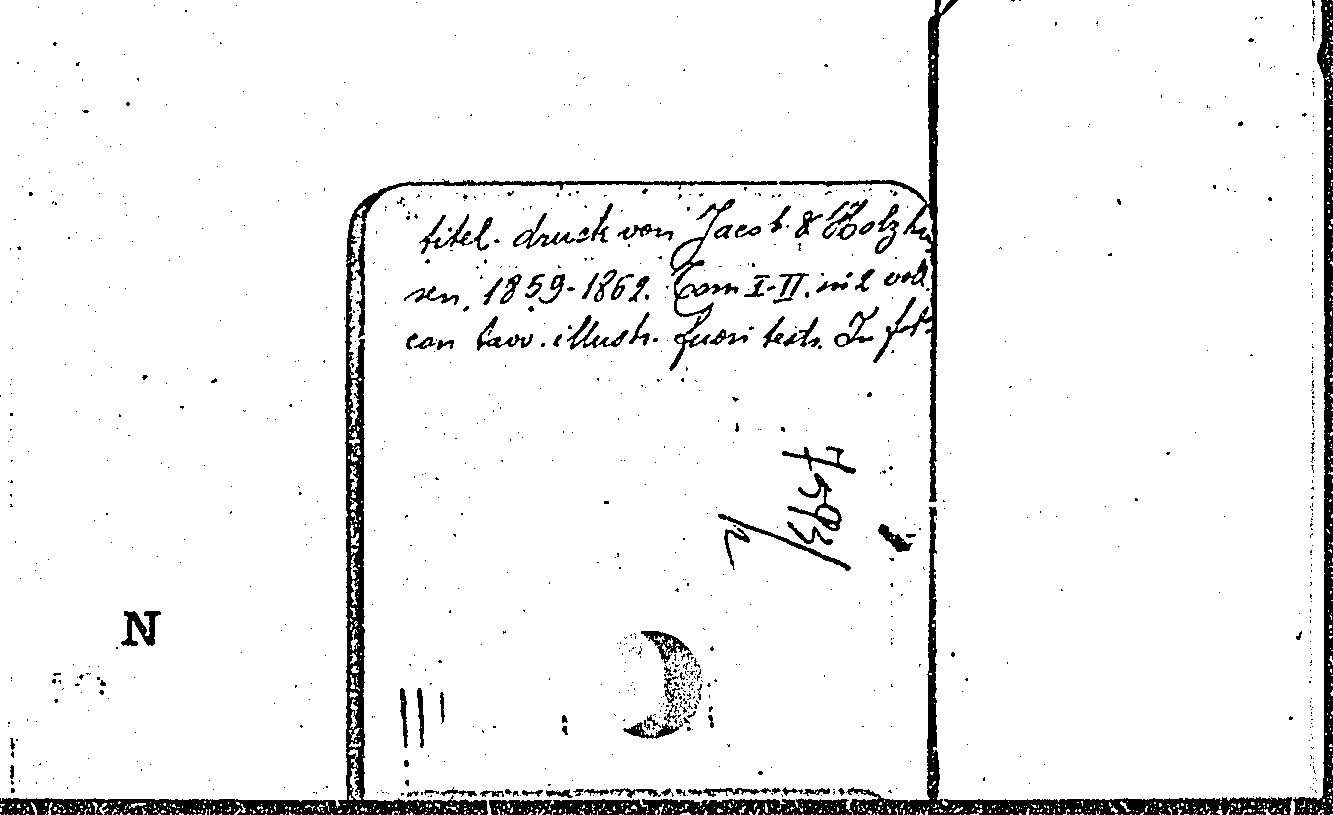 titel. druck von Jacob & Holzhau
sen, 1859-1862. Tom I-II. in 2 voll.
con tavv. illustr. fuori testo. In fol.
N